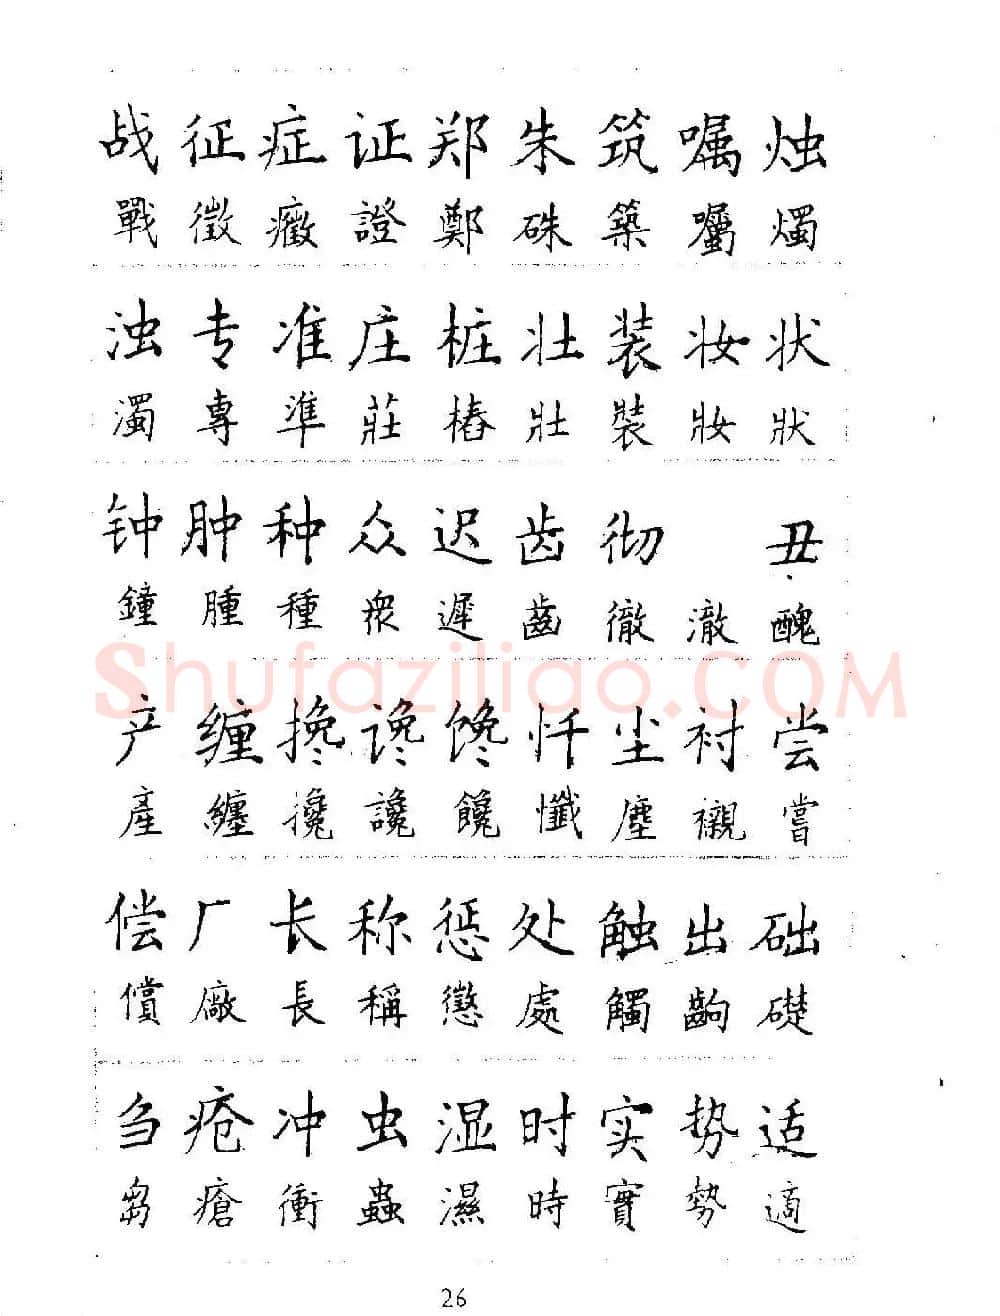 战 征 症 证 郑 朱 筑 嘱 烛
戰 徵 癥 證 鄭 硃 築 囑 燭
浊 专 准 庄 桩 壮 装 妆 状
濁 專 準 莊 樁 壯 裝 妝 狀
钟 肿 种 众 迟 齿 彻 丑
鐘 腫 種 衆 遲 齒 徹 澈 醜
Shufaziliao.COM
产 缠 搀 谗 馋 忏 尘 衬 尝
產 纏 攙 讒 饞 懺 塵 襯 嘗
偿 厂 长 称 惩 处 触 出 础
償 廠 長 稱 懲 處 觸 齣 礎
刍 疮 冲 虫 湿 时 实 势 适
芻 瘡 衝 蟲 濕 時 實 勢 適
26